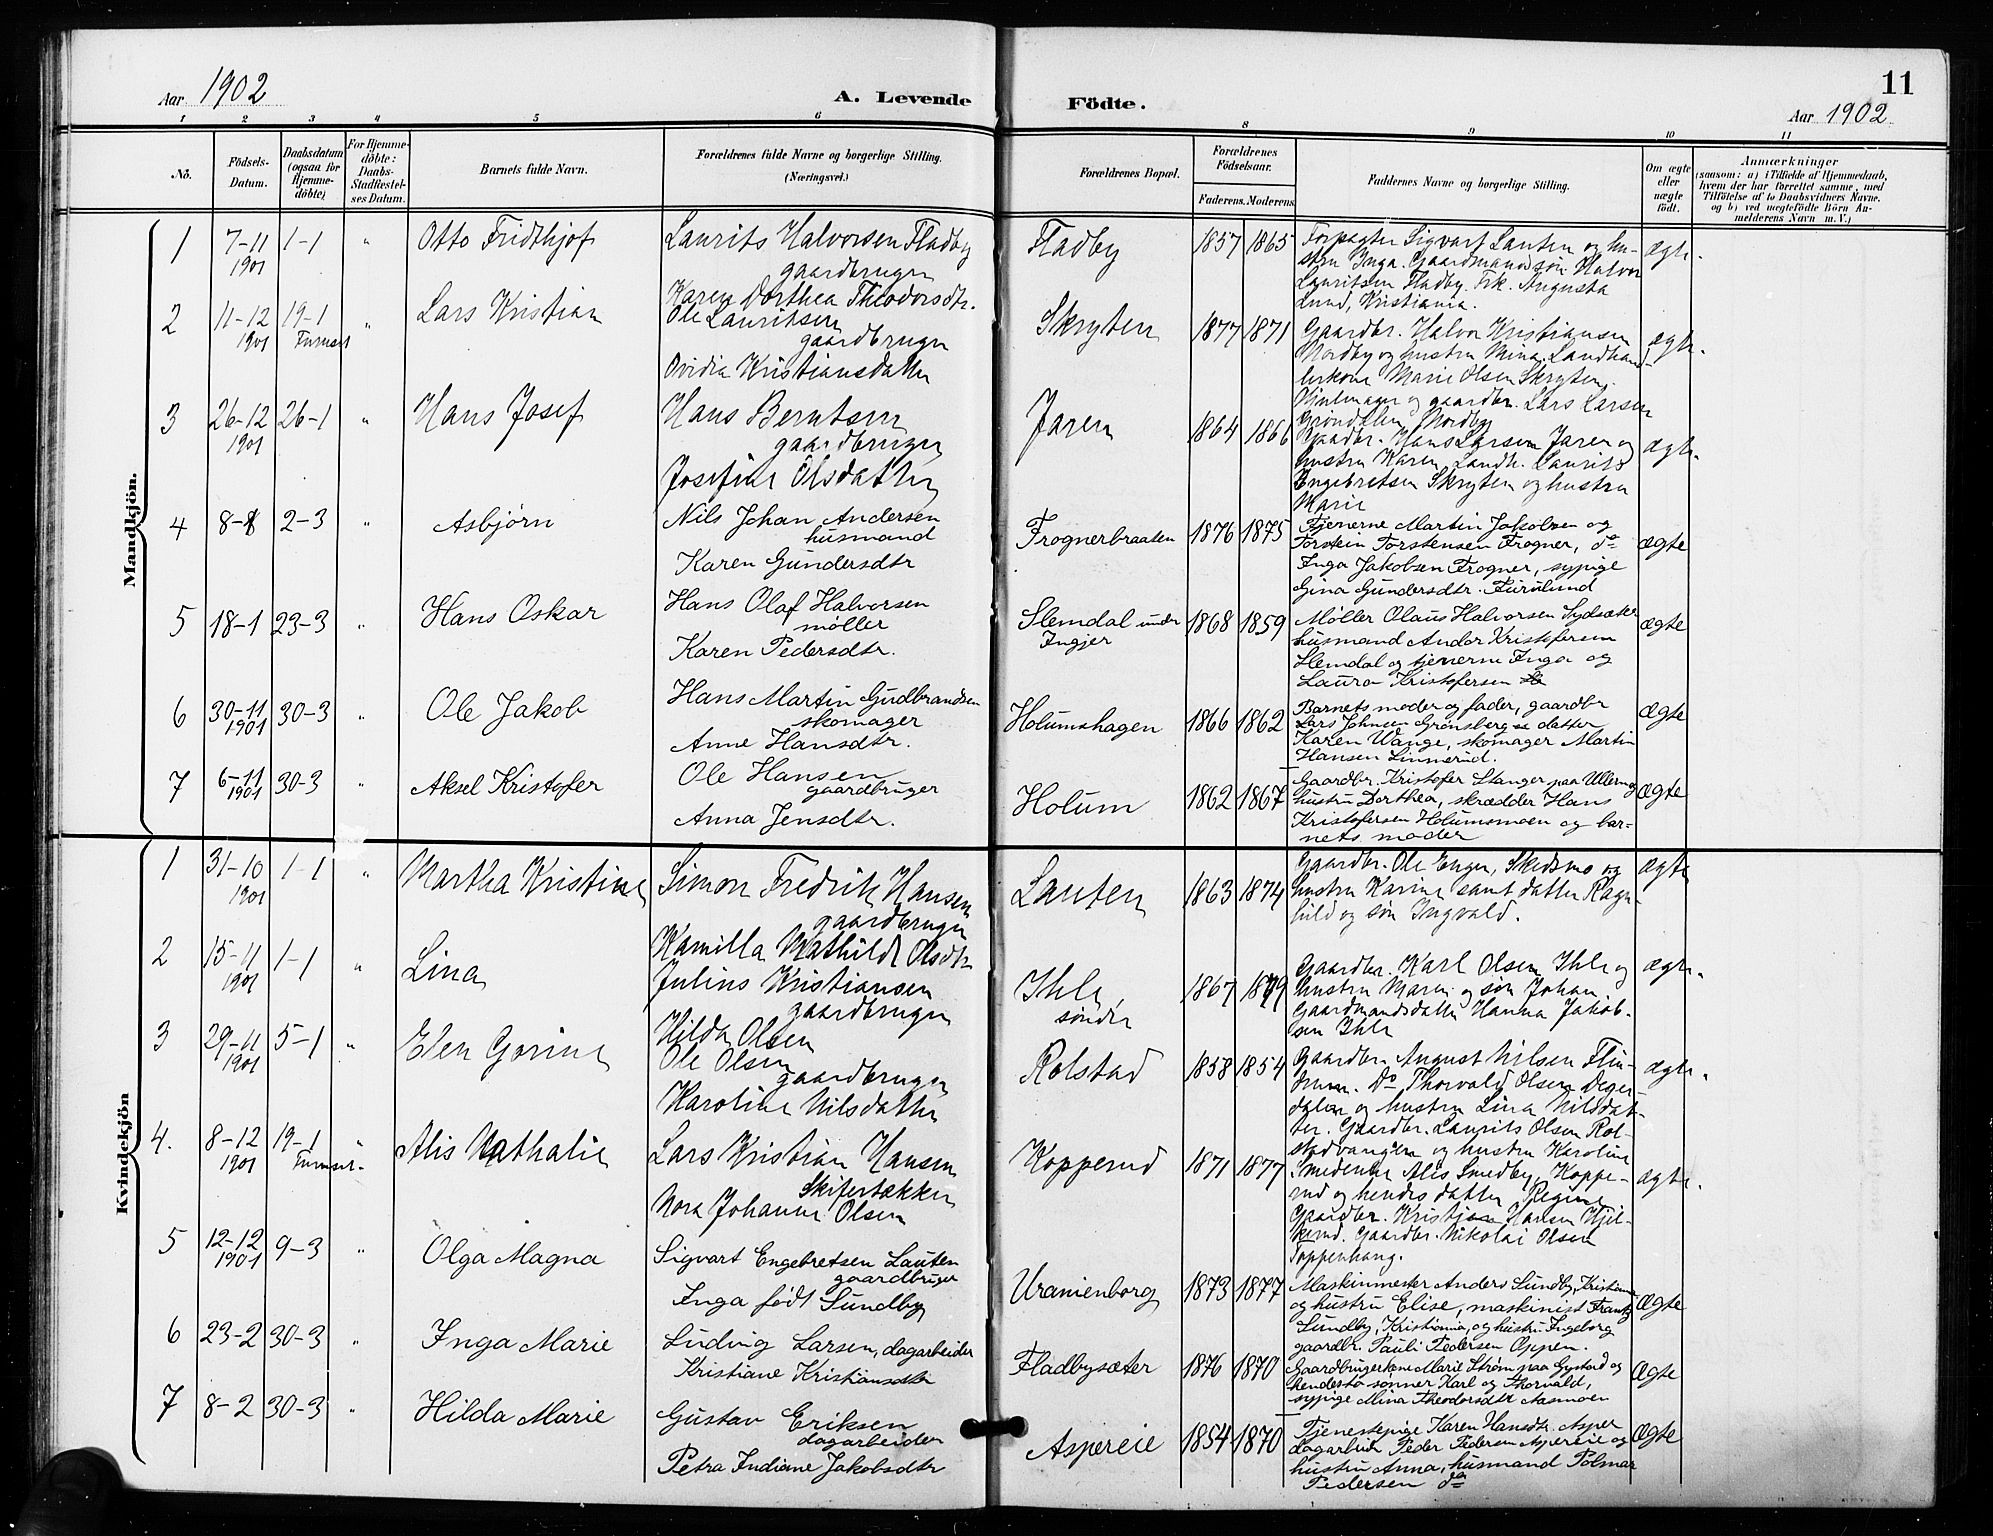 Aar 1902
A. Levende
Födte.
11
Aar 1902
1 2 3 4 5 6 8 9 10 11
No.
Födsels-Datum.
Daabsdatum (ogsaa for Hjemme-döbte)
For Hjemme-döbte: Daabs-Stadfæstel-ses Datum.
Barnets fulde Navn.
Forældrenes fulde Navne og borgerlige Stilling. (Næringsvei.)
Forældrenes Bopæl.
Forældrenes Födselsaar.
Faderens. Moderens.
Faddernes Navne og borgerlige Stilling.
Om ægte eller uægte födt.
Anmærkninger
(saasom: a) i Tilfælde af Hjemmedaab,
hvem der har forrettet samme, med
Tilföielse af to Daabsvidners Navne.
og b) ved uegtefödte Börn An-
melderens Navn m. V.)
Mandkjön.
1 7-11 1901 1-1 " Otto Fridthjof
Laurits Halvorsen Fladby
gaardbruger
Karen Dorthea Theodorsdtr.
Fladby 1857 1865
Forpagter Sigvart Lauten og hu-
stru Inga. Gaardmandssøn Halvor
Lauritsen Fladby. Frk. Augusta
Lund, Kristiania.
ægte.
2 11-12 1901 19-1 Furuset " Lars Kristian
Ole Lauritsen
gaardbruger
Ovidia Kristiansdatter
Skryten 1877 1871
Gaardbr. Halvor Kristiansen
Nordby og hustru Mina. Landhand-
lerkone Marie Olsen Skryten.
Hjulmager og gaardbr. Lars Larsen
Grøndalen Nordby
ægte.
3 26-12 1901 26-1 " Hans Josef
Hans Berntsen
gaardbruger
Josefine Olsdatter
Jaren 1864 1866
Gaardbr. Hans Larsen Jaren og
hustru Karen. Landh. Laurits
Engebretsen Skryten og hustru
Marie
ægte.
4 8-1 2-3 " Asbjørn
Nils Johan Andersen
husmand
Karen Gundersdtr
Frognerbraaten 1876 1875
Tjenerne Martin Jakobsen og
Torstein Torstensen Frogner, do
Inga Jakobsen Frogner, sypige
Gina Gundersdtr. Furulund
ægte
5 18-1 23-3 " Hans Oskar
Hans Olaf Halvorsen
møller
Karen Pedersdtr.
Slemdal under Ingjer 1868 1859
Møller Olaus Halvorsen Sydsæter
husmand Andor Kristofersen
Slemdal og tjenerne Inga og
Laura Kristofersen
ægte
6 30-11 1901 30-3 " Ole Jakob
Hans Martin Gudbrandsen
skomager
Anne Hansdtr.
Holumshagen 1866 1862
Barnets moder og fader, gaardbr
Lars Johnsen Grønsberg datter
Karen Wange, skomager Martin
Hansen Linnerud.
Ægte
7 6-11 1901 30-3 " Aksel Kristofer
Ole Hansen
gaardbruger
Anna Jensdtr.
Holum 1862 1867
Gaardbr. Kristofer Stanger paa Ulleren og
hustru Dorthea, skrædder Hans
Kristofersen Holumsmoen og bar-
nets moder
Ægte
Kvindekjön
1 31-10 1901 1-1 " Martha Kristine
Simon Fredrik Hansen
gaardbruger
Kamilla Mathilde Olsdtr
Lauten 1863 1874
Gaardbr. Ole Enger, Skedsmo og
hustru Karine samt datter Ragn-
hild og søn Ingvald.
ægte
2 15-11 1901 1-1 " Lina
Julius Kristiansen
gaardbruger
Hilda Olsen
Ihle, søndre 1867 1879
Gaardbr. Karl Olsen Ihle og
hustru Maren og søn Johan
Gaardmandsdatter Hanna Jakob-
sen Ihle
ægte.
3 29-11 1901 5-1 " Elen Gorine
Ole Olsen
gaardbruger
Karoline Nilsdatter
Rolstad 1858 1854
Gaardbr. August Nilsen Flin-
drum. Do Thorvald Olsen Deger-
dalen og hustru Lina Nilsdat-
ter. Gaardbr. Laurits Olsen Rol-
stadvangen og hustru Karoline
ægte.
4. 8-12 1901 19-1 Furuset. " Alis Nathalie
Lars Kristian Hansen
Skifertækker
Nora Johanne Olsen
Kopperud 1871 1877
Smedenke Alis Smedby, Koppe-
rud og hendes datter Regine
Gaardbr. Kristian Hansen Kjil-
kerud. Gaardbr. Nikolai Olsen
Toppenhaug.
ægte.
5 12-12 1901 9-3 " Olga Magna
Sigvart Engebretsen Lauten
gaardbruger
Inga født Sundby
Uranienborg 1873 1877
Maskinmester Anders Sundby, Kristiania
og hustru Elise, maskinist Frantz
Sundby, Kristiania, og hustru Ingeborg
gaardbr. Pauli Pedersen Oppen.
Ægte
6 23-2 30-3 " Inga Marie
Ludvig Larsen, dagarbeider
Kristiane Kristiansdtr
Fladbysæter 1876 1870
Gaardbrugerkone Marie Strøm paa Gystad og
hendes to sønner Karl og Thorvald,
sypige Mina Theodorsdtr Aasmoen
Ægte
7 8-2 30-3 " Hilda Marie
Gustav Eriksen
dagarbeider
Petra Indiane Jakobsdtr
Aspereie 1854 1870
Tjenestepige Karen Hansdtr. Asper
dagarbeider Peder Pedersen Aspereie og
hustru Anna, husmand Polmar
Pedersen do
Ægte